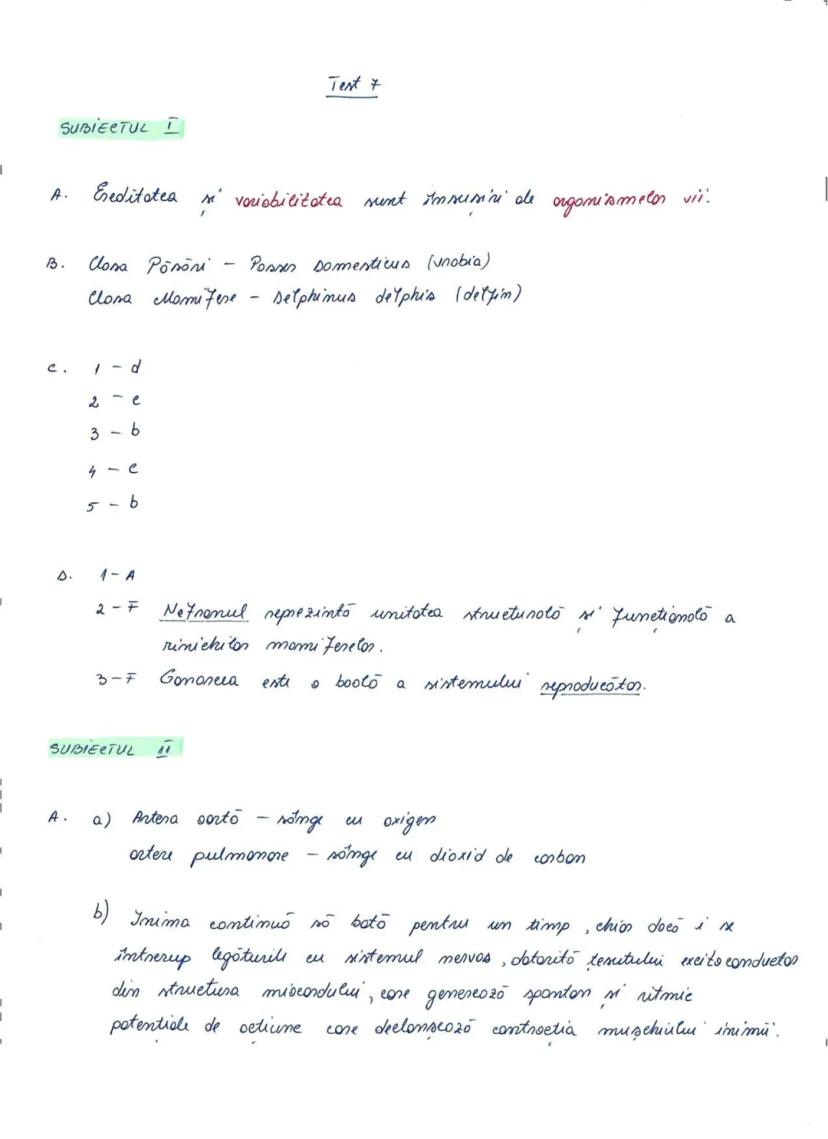 Test 7
SUBIECTUL I
A. Ereditatea și variabilitatea sunt însușiri ale organismelor vii.
B. Clasa Păsări - Passer Domesticus (vrabia)
Clasa Mamifere - Delphinus delphis (delfin)
C. 1 - d
2 - c
3 - b
4 - c
5 - b
D. 1 - A
2 - F Nefronul reprezintă unitatea structurală și funcțională a
rinichilor mamiferelor.
3 - F Gonoreea este o boală a sistemului reproducător.
SUBIECTUL II
A. a) Artera aortă - sânge cu oxigen
artere pulmonare - sânge cu dioxid de carbon
b) Inima continuă să bată pentru un timp, chiar dacă i se
întrerup legăturile cu sistemul nervos, datorită țesutului excitoconductor
din structura miocardului, care generează spontan și ritmic
potențiale de acțiune care declanșează contracția mușchiului inimii.